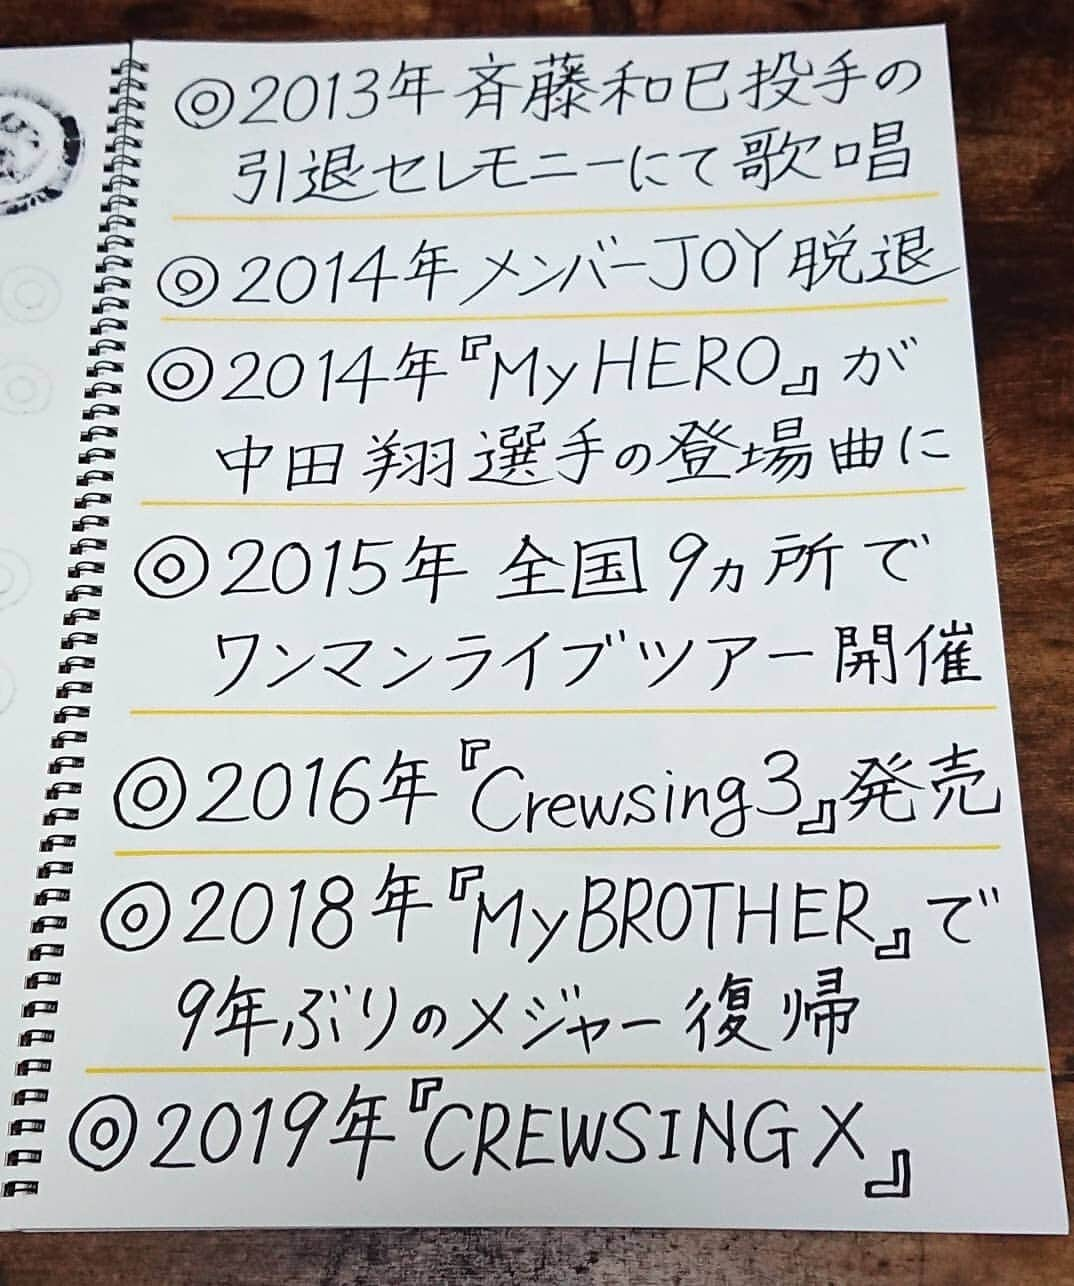 ◎2013年 斉藤和巳投手の
引退セレモニーにて歌唱
◎2014年メンバーJOY脱退
◎2014年『My HERO』が
中田翔選手の登場曲に
◎2015年 全国9ヵ所で
ワンマンライブツアー開催
◎2016年『Crewsing3』発売
◎2018年『My BROTHER』で
9年ぶりのメジャー復帰
◎2019年『CREWSING X』